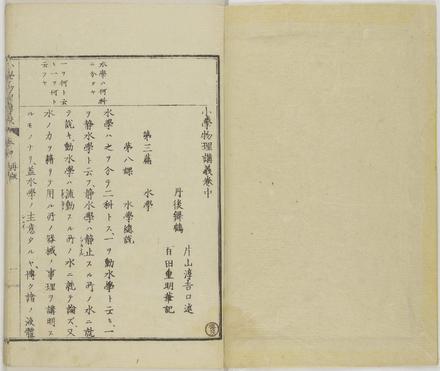 小學物理講義卷中
丹後舞鶴 片山淳吉口述
百田重明筆記
第三篇 水學
第八課 水學總説
水學ハ之ヲ分テ二科トス、一ヲ動水學ト云ヒ、一
ヲ静水學ト云フ、静水學ハ静止スル所ノ水ニ就
テ説キ、動水學ハ流動スル所ノ水ニ就テ論ズ、又
水ノ力ヲ藉リテ用ル所ノ器械ノ事理ヲ講明ス
ルモノナリ、蓋水學ノ主意タルヤ、博ク諸ノ液體
水學ハ何科
ニ分ツヤ
一ヲ何ト云
ヒ一ヲ何ト
云フヤ